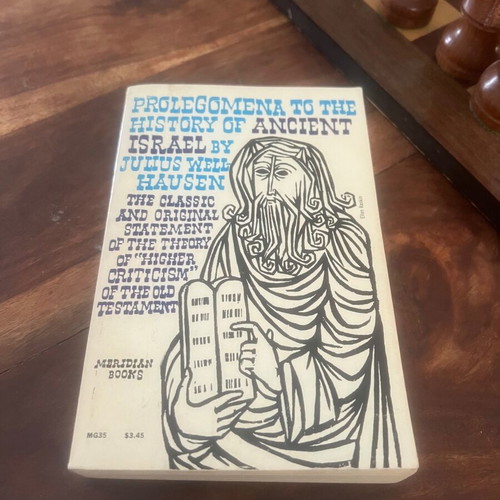 PROLEGOMENA TO THE
HISTORY OF ANCIENT
ISRAEL BY
JULIUS WELL
HAUSEN
THE CLASSIC
AND ORIGINAL
STATEMENT
OF THE THEORY
OF "HIGHER
CRITICISM"
OF THE OLD
TESTAMENT
MERIDIAN
BOOKS
MG35 $3.45